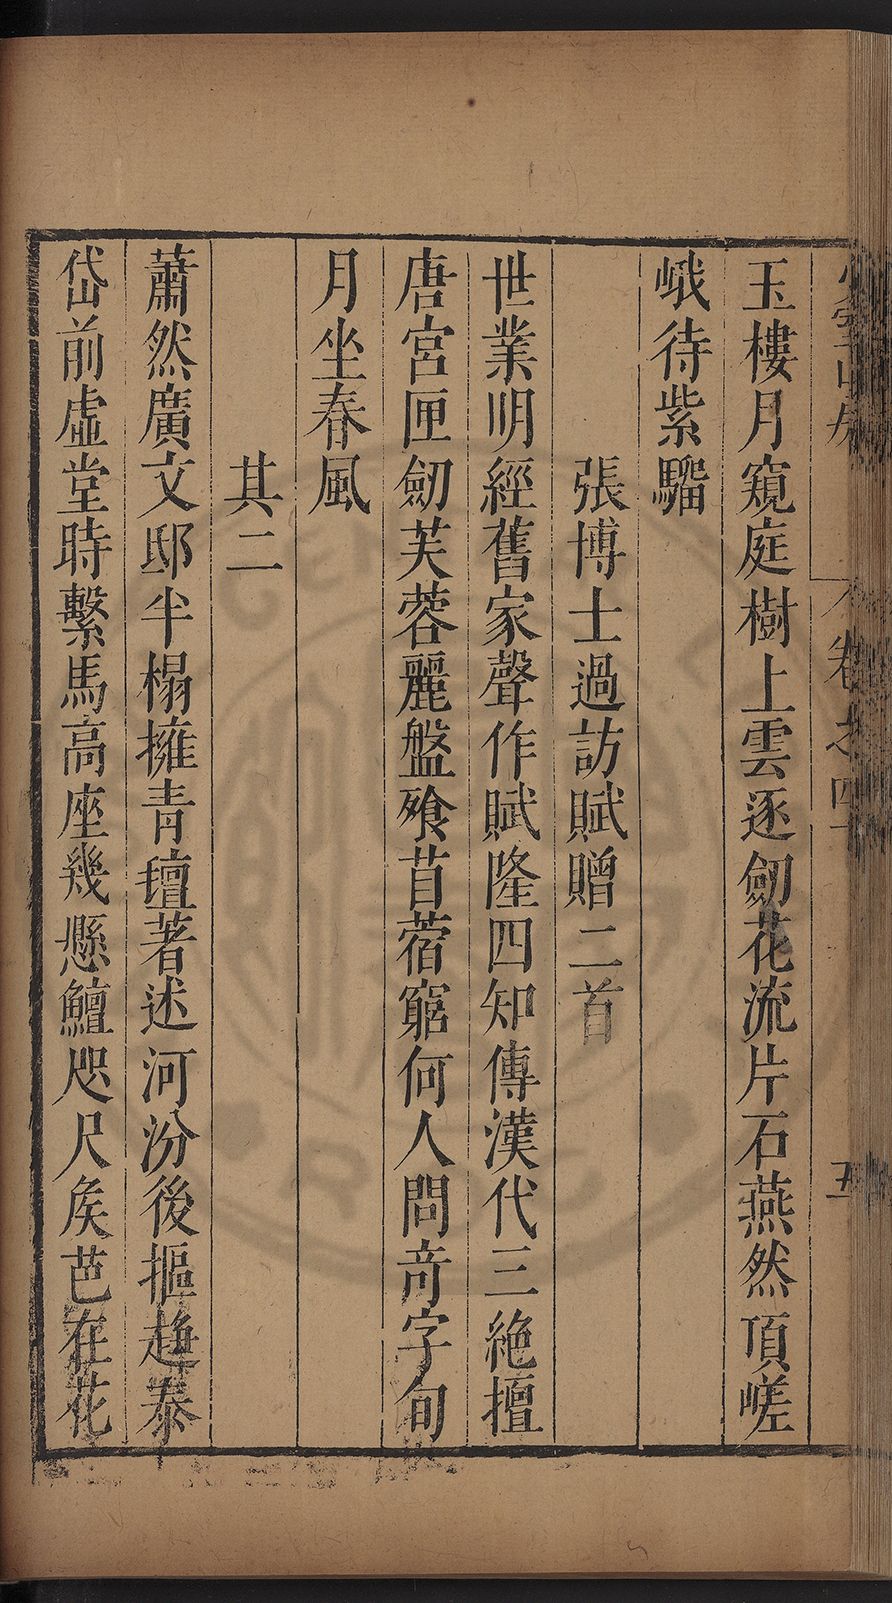 卷之四 五
玉樓月窺庭樹上雲逐劒花流片石燕然頂嵯
峨待紫騮
張博士過訪賦贈二首
世業明經舊家聲作賦隆四知傳漢代三絶擅
唐宮匣劒芙蓉麗盤飱苜蓿窮何人問竒字旬
月坐春風
其二
蕭然廣文邸半榻擁青氊著述河汾後摳趨泰
岱前虛堂時繫馬高座幾懸鱣咫尺矦芭在花